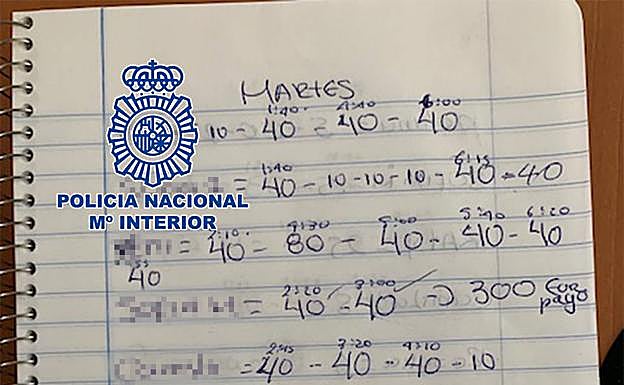 MARTES
1:40 4:40 6:00
10 - 40 = 40 - 40
1:40 6:15
= 40 - 10 - 10 - 10 - 40 - 40
POLICIA NACIONAL
Mº INTERIOR
2:10 4:30 5:00 5:40 6:20
= 40 - 80 - 40 - 40 - 40
40
2:20 3:00
= 40 - 40 → 300 payo
2:45 3:20 4:10
= 40 - 40 - 40 - 10